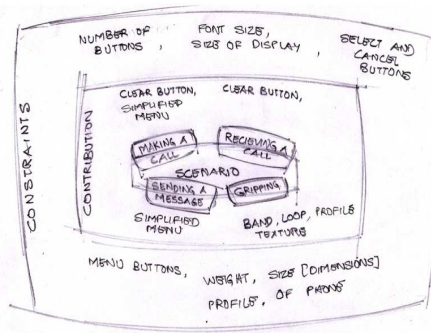 NUMBER OF BUTTONS ,
FONT SIZE,
SIZE OF DISPLAY ,
SELECT AND CANCEL BUTTONS
CONSTRAINTS
CONTRIBUTION
CLEAR BUTTON,
SIMPLIFIED MENU
CLEAR BUTTON,
MAKING A CALL
RECIEVING A CALL
SCENARIO
SENDING A MESSAGE
GRIPPING
SIMPLIFIED MENU
BAND, LOOP, PROFILE
TEXTURE
MENU BUTTONS, WEIGHT, SIZE [DIMENSIONS]
PROFILE, OF PHONE